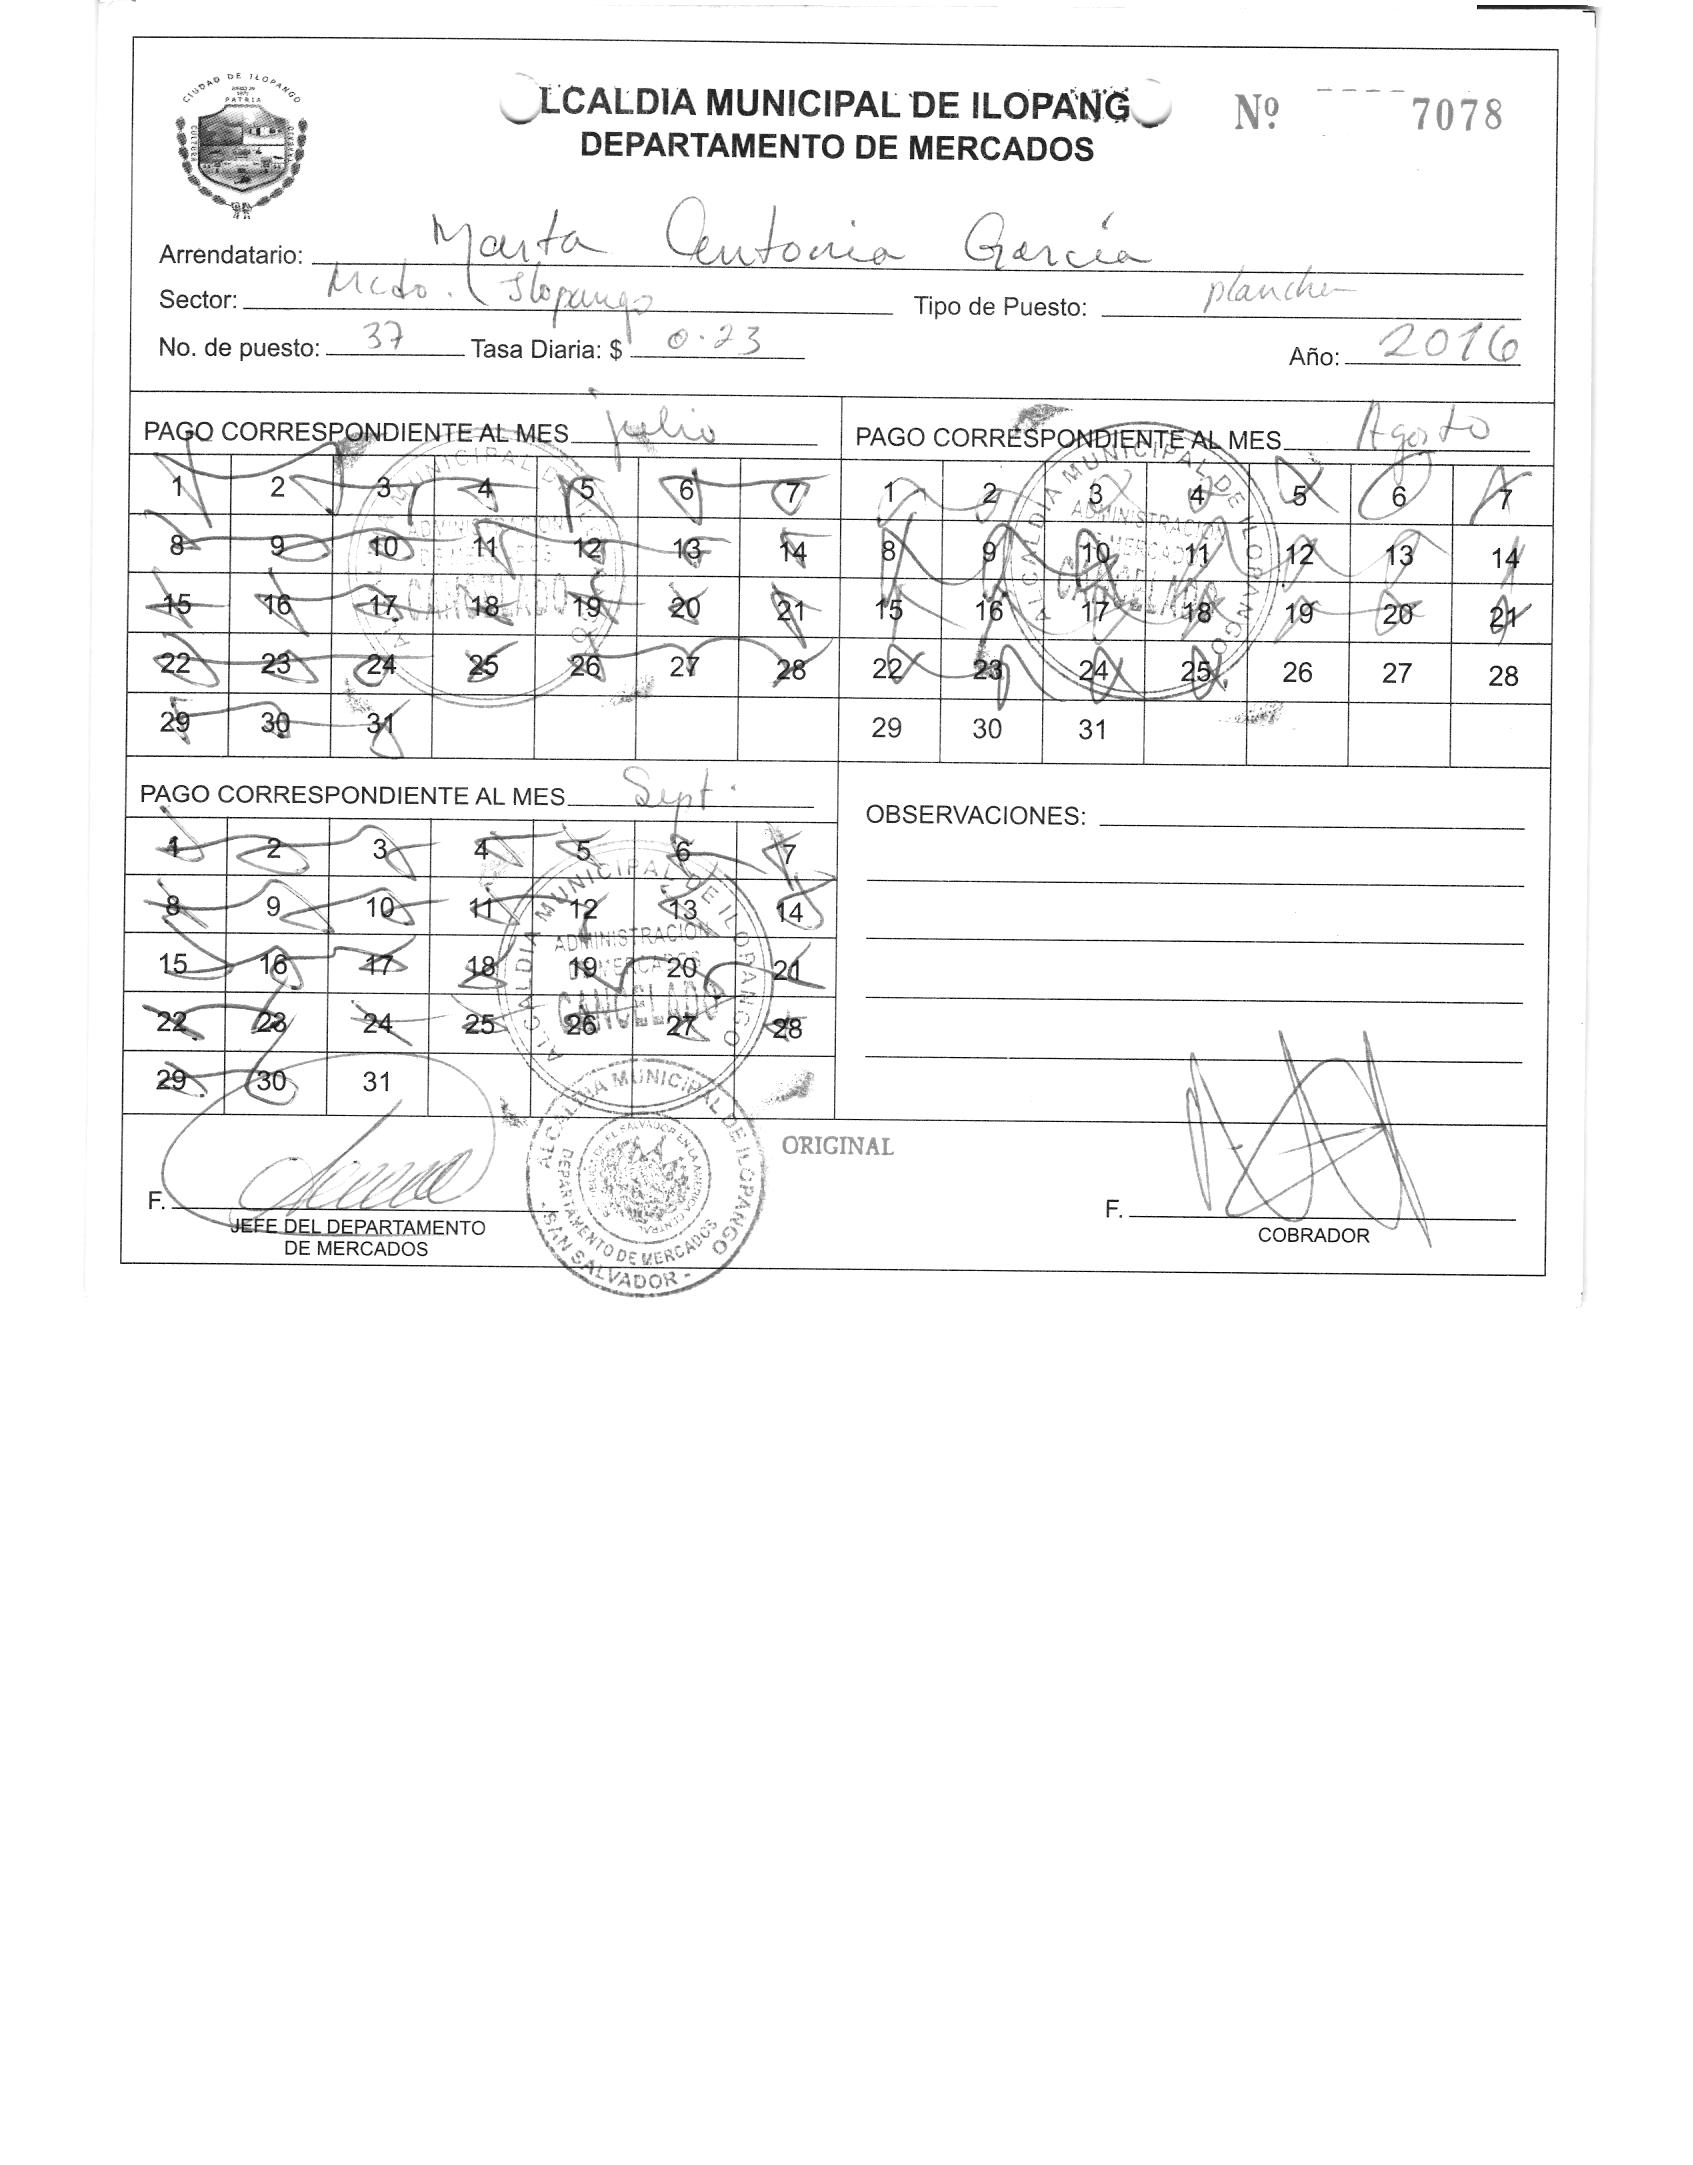 CIUDAD DE ILOPANGO
PATRIA
LCALDIA MUNICIPAL DE ILOPANG
DEPARTAMENTO DE MERCADOS
Nº 7078
Arrendatario: Marta Antonia García
Sector: Mcdo. Ilopango Tipo de Puesto:
No. de puesto: 37 Tasa Diaria: $ 0.23 Año: 2016
PAGO CORRESPONDIENTE AL MES julio
1 2 3 4 5 6 7
8 9 10 11 12 13 14
15 16 17 18 19 20 21
22 23 24 25 26 27 28
29 30 31
PAGO CORRESPONDIENTE AL MES Agosto
1 2 3 4 5 6 7
8 9 10 11 12 13 14
15 16 17 18 19 20 21
22 23 24 25 26 27 28
29 30 31
ALCALDIA MUNICIPAL DE ILOPANGO
ADMINISTRACION
CANCELADO
PAGO CORRESPONDIENTE AL MES Sept.
1 2 3 4 5 6 7
8 9 10 11 12 13 14
15 16 17 18 19 20 21
22 23 24 25 26 27 28
29 30 31
ALCALDIA MUNICIPAL DE ILOPANGO
ADMINISTRACION
DE MERCADOS
CANCELADO
OBSERVACIONES:
ORIGINAL
F.
JEFE DEL DEPARTAMENTO
DE MERCADOS
ALCALDIA MUNICIPAL DE ILOPANGO
DEPARTAMENTO DE MERCADOS
- SAN SALVADOR -
F.
COBRADOR